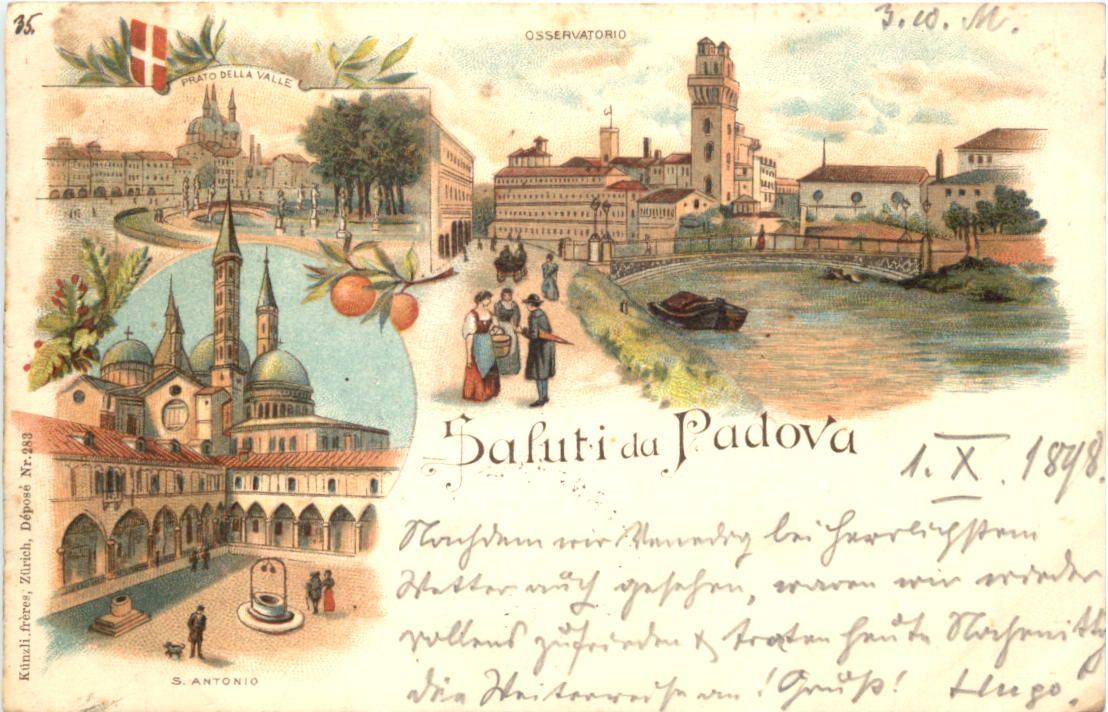 35.
3.10. M.
PRATO DELLA VALLE
OSSERVATORIO
Saluti da Padova
1. X. 1898.
Nachdem wir Venedig bei herrlichstem
Wetter auch gesehen, waren wir wieder
vollends zufrieden & traten heute Nachmittg
die Weiterreise an! Gruß! Hugo.
S. ANTONIO
Künzli frères, Zürich, Déposé Nr. 283